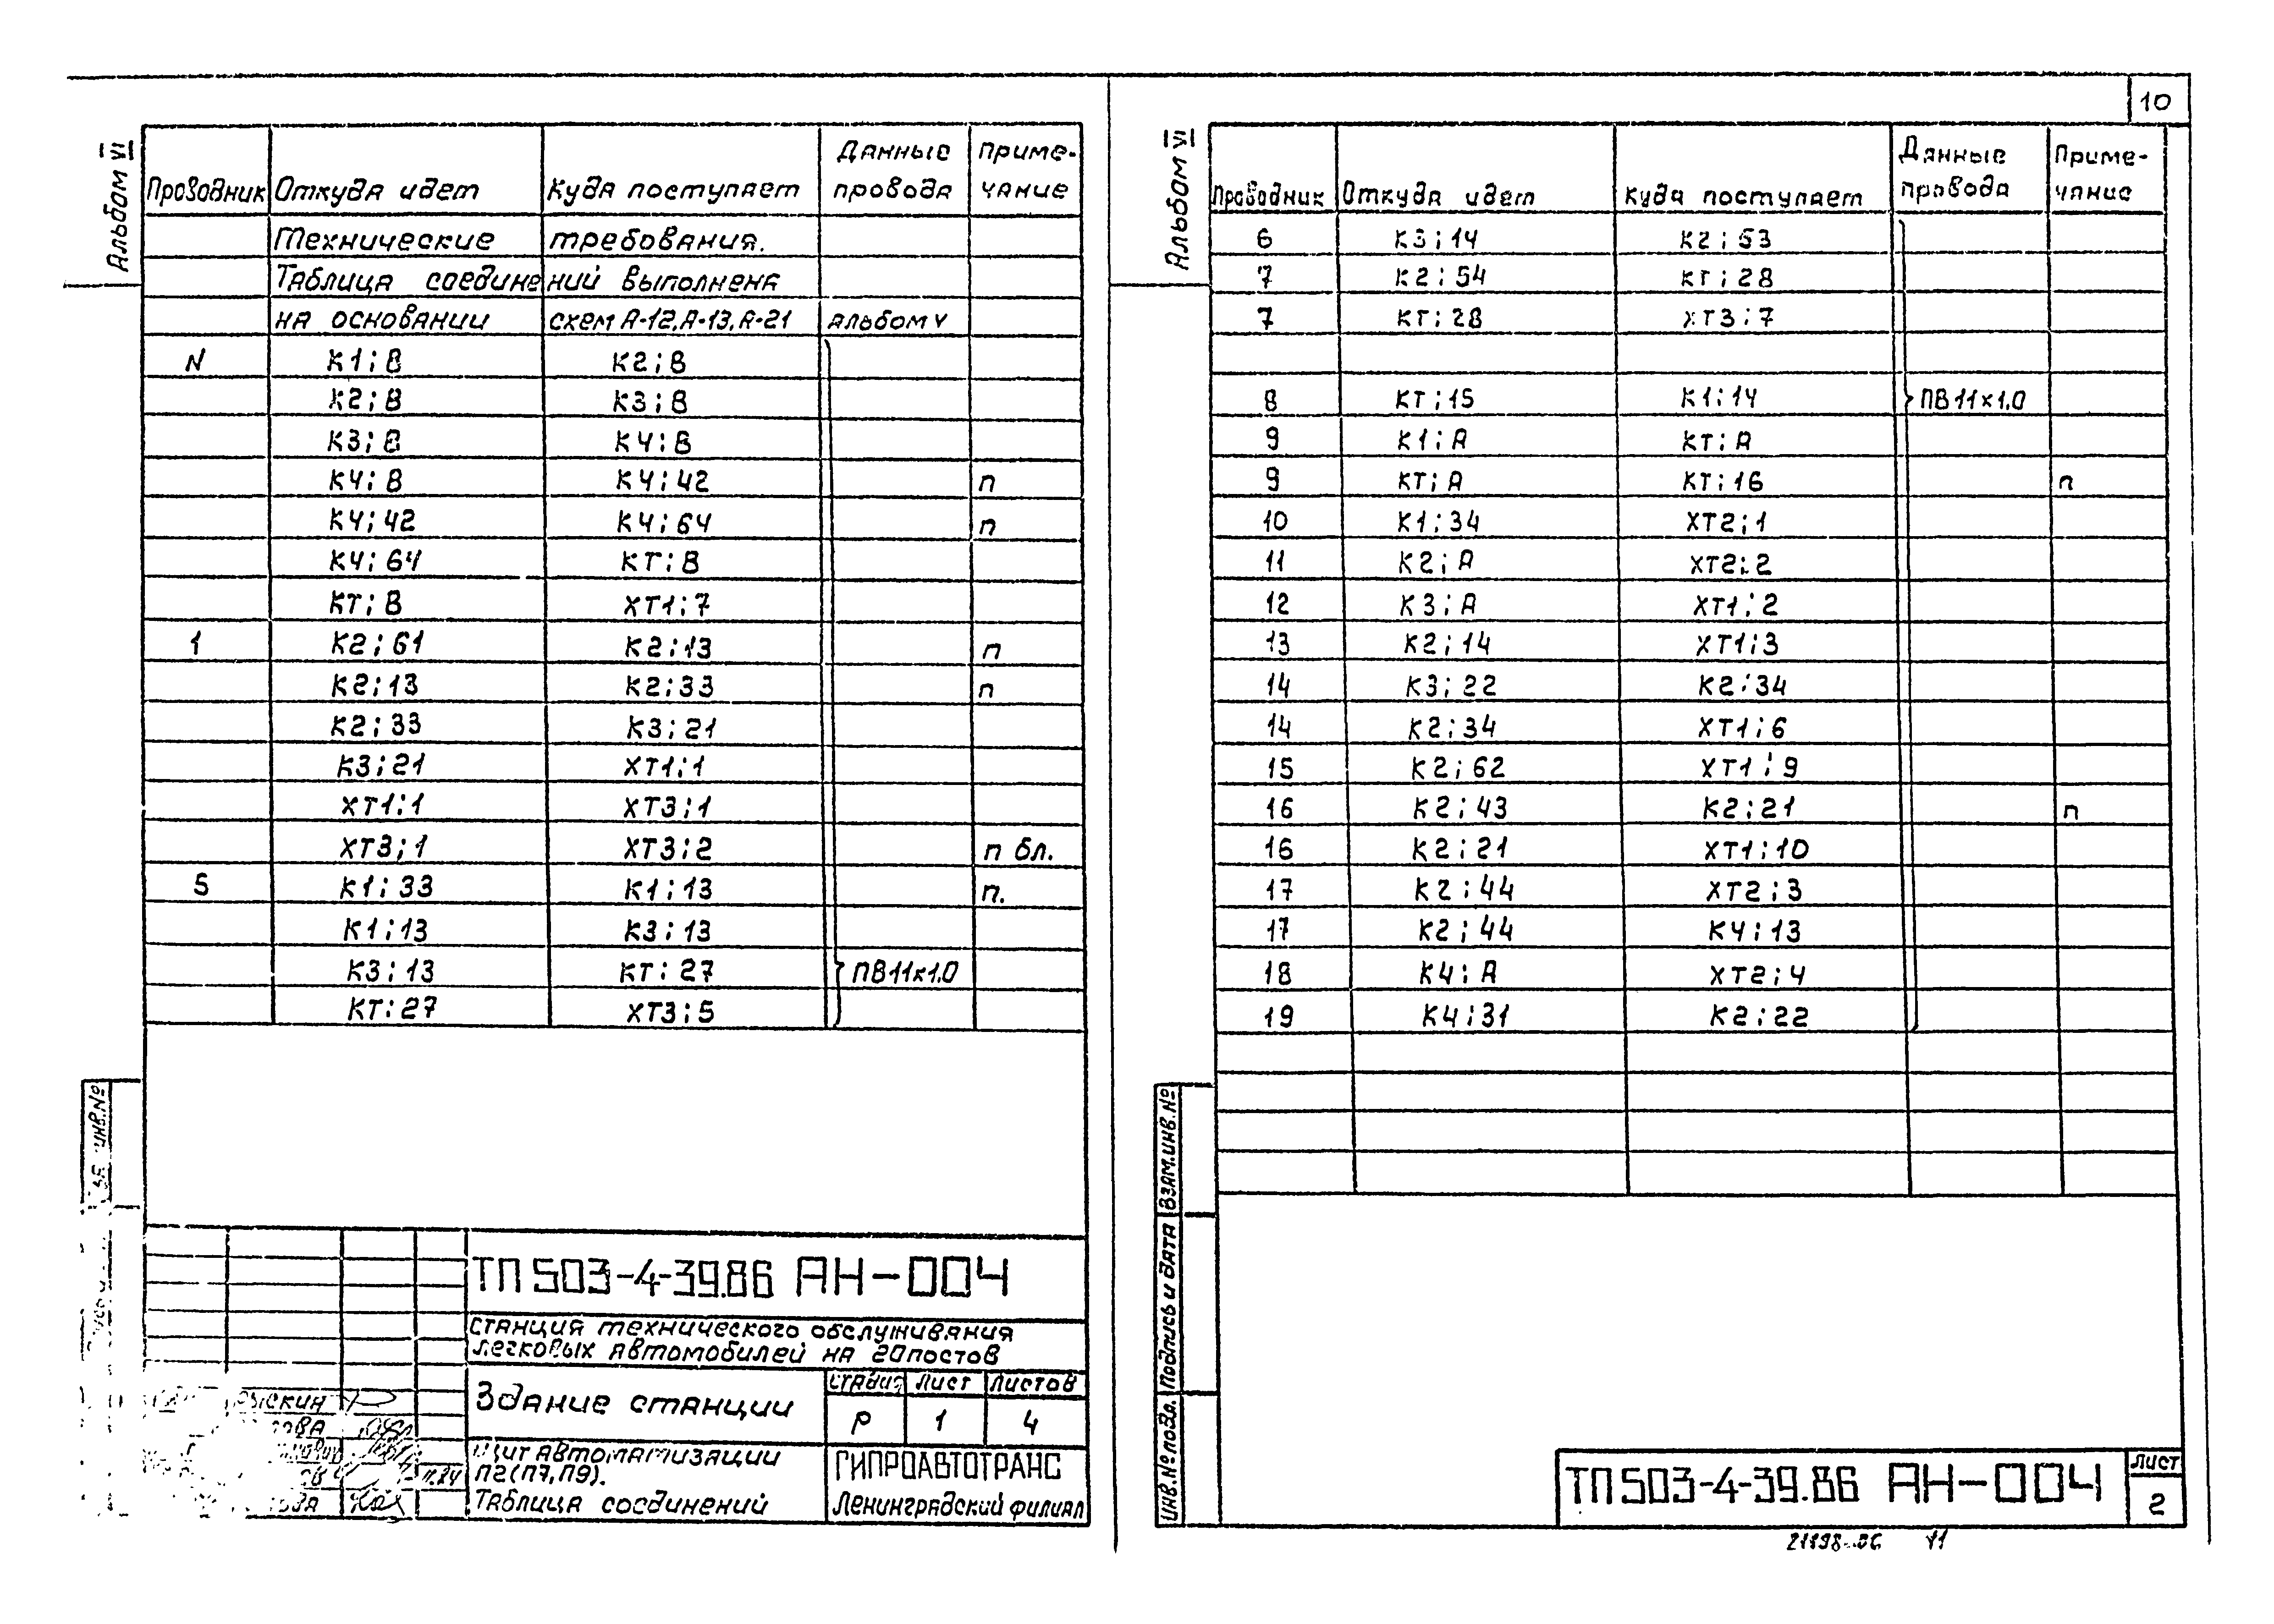 10
Альбом VI
Проводник Откуда идет Куда поступает Данные провода Примечание
Технические требования.
Таблица соединений выполнена
на основании схем А-12, А-13, А-21 альбом V
N К1:В К2:В
К2:В К3:В
К3:В К4:В
К4:В К4:42 п
К4:42 К4:64 п
К4:64 КТ:В
КТ:В ХТ1:7
1 К2:61 К2:13 п
К2:13 К2:33 п
К2:33 К3:21
К3:21 ХТ1:1
ХТ1:1 ХТ3:1
ХТ3:1 ХТ3:2 п бл.
5 К1:33 К1:13 п.
К1:13 К3:13
К3:13 КТ:27 ПВ11х1.0
КТ:27 ХТ3:5
инв.№
ТП 503-4-39.86 АН-004
Станция технического обслуживания
легковых автомобилей на 20 постов
Здание станции
Стадия Лист Листов
Р 1 4
Щит автоматизации
П2(П7,П9).
Таблица соединений
ГИПРОАВТОТРАНС
Ленинградский филиал
Альбом VI
Проводник Откуда идет Куда поступает Данные провода Примечание
6 К3:14 К2:53
7 К2:54 КТ:28
7 КТ:28 ХТ3:7
8 КТ:15 К1:14 ПВ11х1.0
9 К1:А КТ:А
9 КТ:А КТ:16 п
10 К1:34 ХТ2:1
11 К2:А ХТ2:2
12 К3:А ХТ1:2
13 К2:14 ХТ1:3
14 К3:22 К2:34
14 К2:34 ХТ1:6
15 К2:62 ХТ1:9
16 К2:43 К2:21 п
16 К2:21 ХТ1:10
17 К2:44 ХТ2:3
17 К2:44 К4:13
18 К4:А ХТ2:4
19 К4:31 К2:22
Инв.№ подл. Подпись и дата Взам.инв.№
ТП 503-4-39.86 АН-004
Лист
2
21198-06 11